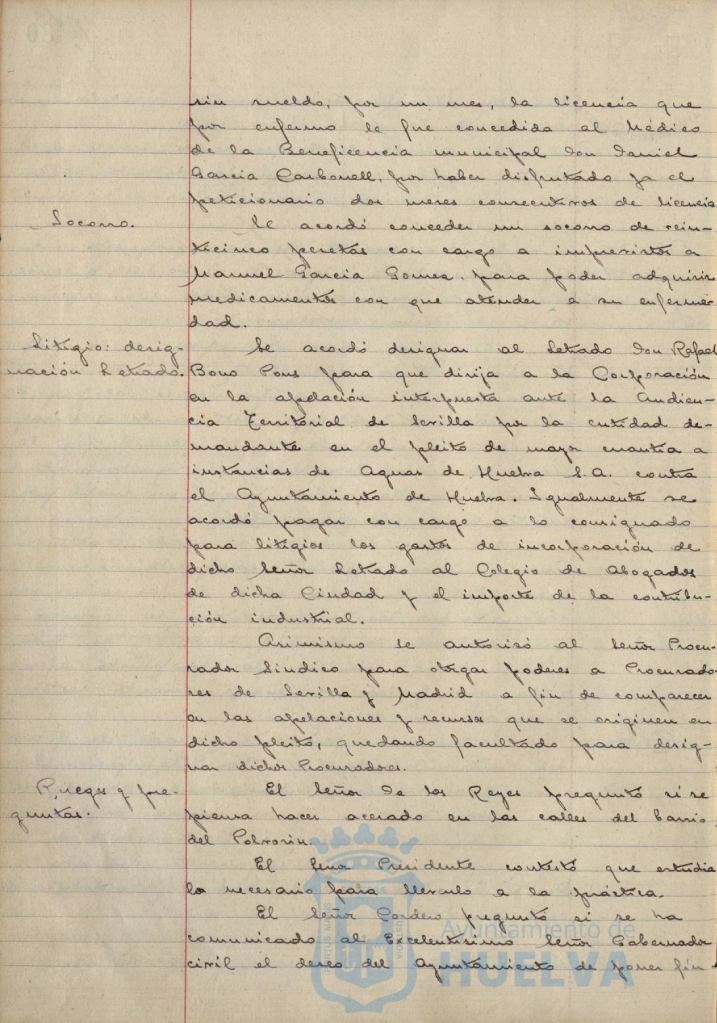 sin sueldo, por un mes, la licencia que
por enfermo le fue concedida al Médico
de la Beneficencia municipal don Daniel
Garcia Carbonell, por haber disfrutado ya el
peticionario dos meses consecutivos de licencia
Socorro.
Se acordó conceder un socorro de vein-
ticinco pesetas con cargo a imprevistos a
Manuel Garcia Gomez. para poder adquirir
medicamentos con que atender a su enferme-
dad.
Litigio: desig-
nación Letrado.
Se acordó designar al Letrado don Rafael
Bono Pons para que dirija a la Corporación
en la apelación interpuesta ante la Audien-
cia Territorial de Sevilla por la entidad de-
mandante en el pleito de mayor cuantia a
instancias de Aguas de Huelva S.A. contra
el Ayuntamiento de Huelva. Igualmente se
acordó pagar con cargo a lo consignado
para litigios los gastos de incorporación de
dicho Señor Letrado al Colegio de Abogados
de dicha Ciudad y el importe de la contribu-
ción industrial.
Asimismo se autorizó al Señor Procu-
rador Sindico para otorgar poderes a Procurado-
res de Sevilla y Madrid a fin de comparecer
en las apelaciones y recursos que se originen en
dicho pleito, quedando facultado para desig-
nar dichos Procuradores.
Ruegos y pre-
guntas.
El Señor de los Reyes preguntó si se
piensa hacer acerado en las calles del barrio
del Polvorin.
El Señor Presidente contestó que estudia
lo necesario para llevarlo a la práctica.
El Señor Cordero preguntó si se ha
comunicado al Excelentisimo Señor Gobernador
civil el deseo del Ayuntamiento de poner fin
Ayuntamiento de
HUELVA